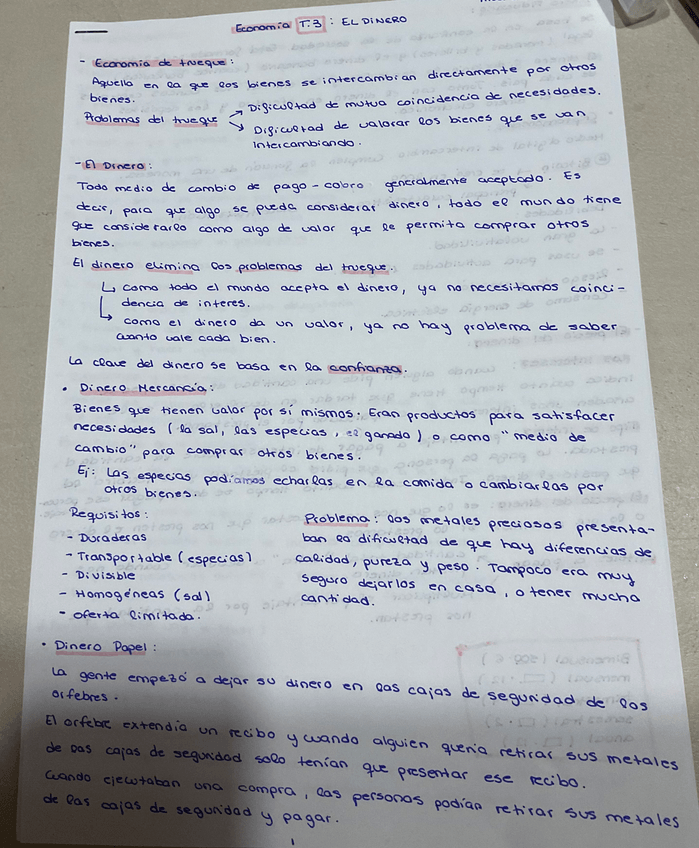 Economía T.3 : EL DINERO
- Economía de trueque :
Aquella en la que los bienes se intercambian directamente por otros
bienes.
Problemas del trueque → Dificultad de mutua coincidencia de necesidades.
↘ Dificultad de valorar los bienes que se van
intercambiando.
- El Dinero :
Todo medio de cambio de pago - cobro generalmente aceptado. Es
decir, para que algo se pueda considerar dinero, todo el mundo tiene
que considerarlo como algo de valor que le permita comprar otros
bienes.
El dinero elimina los problemas del trueque.
↳ como todo el mundo acepta el dinero, ya no necesitamos coinci-
dencia de interes.
↳ como el dinero da un valor, ya no hay problema de saber
cuanto vale cada bien.
La clave del dinero se basa en la confianza.
• Dinero Mercancía :
Bienes que tienen valor por sí mismos. Eran productos para satisfacer
necesidades (la sal, las especias, el ganado) o como "medio de
cambio" para comprar otros bienes.
Ej: Las especias podíamos echarlas en la comida o cambiarlas por
otros bienes.
Requisitos :
- Duraderas
- Transportable (especias)
- Divisible
- Homogéneas (sal)
- Oferta limitada.
Problema : los metales preciosos presenta-
ban la dificultad de que hay diferencias de
calidad, pureza y peso. Tampoco era muy
seguro dejarlos en casa, o tener mucha
cantidad.
• Dinero Papel :
La gente empezó a dejar su dinero en las cajas de seguridad de los
orfebres.
El orfebre extendía un recibo y cuando alguien quería retirar sus metales
de las cajas de seguridad solo tenían que presentar ese recibo.
Cuando ejecutaban una compra, las personas podían retirar sus metales
de las cajas de seguridad y pagar.